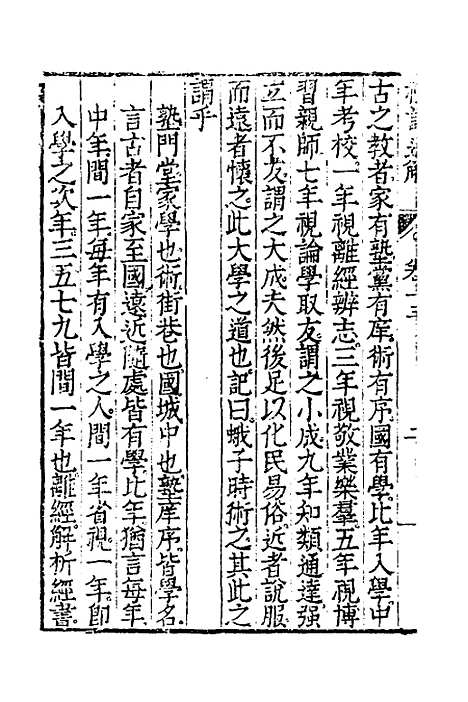 禮記通解 卷十五 二
古之教者家有塾黨有庠術有序國有學比年入學中
年考校一年視離經辨志三年視敬業樂羣五年視博
習親師七年視論學取友謂之小成九年知類通達強
立而不反謂之大成夫然後足以化民易俗近者說服
而遠者懷之此大學之道也記曰蛾子時術之其此之
謂乎
塾門堂家學也術街巷也國城中也塾庠序皆學名
言古者自家至國遠近隨處皆有學比年猶言每年
中年間一年每年有入學之人間一年省視一年卽
入學之次年三五七九皆間一年也離經解析經書